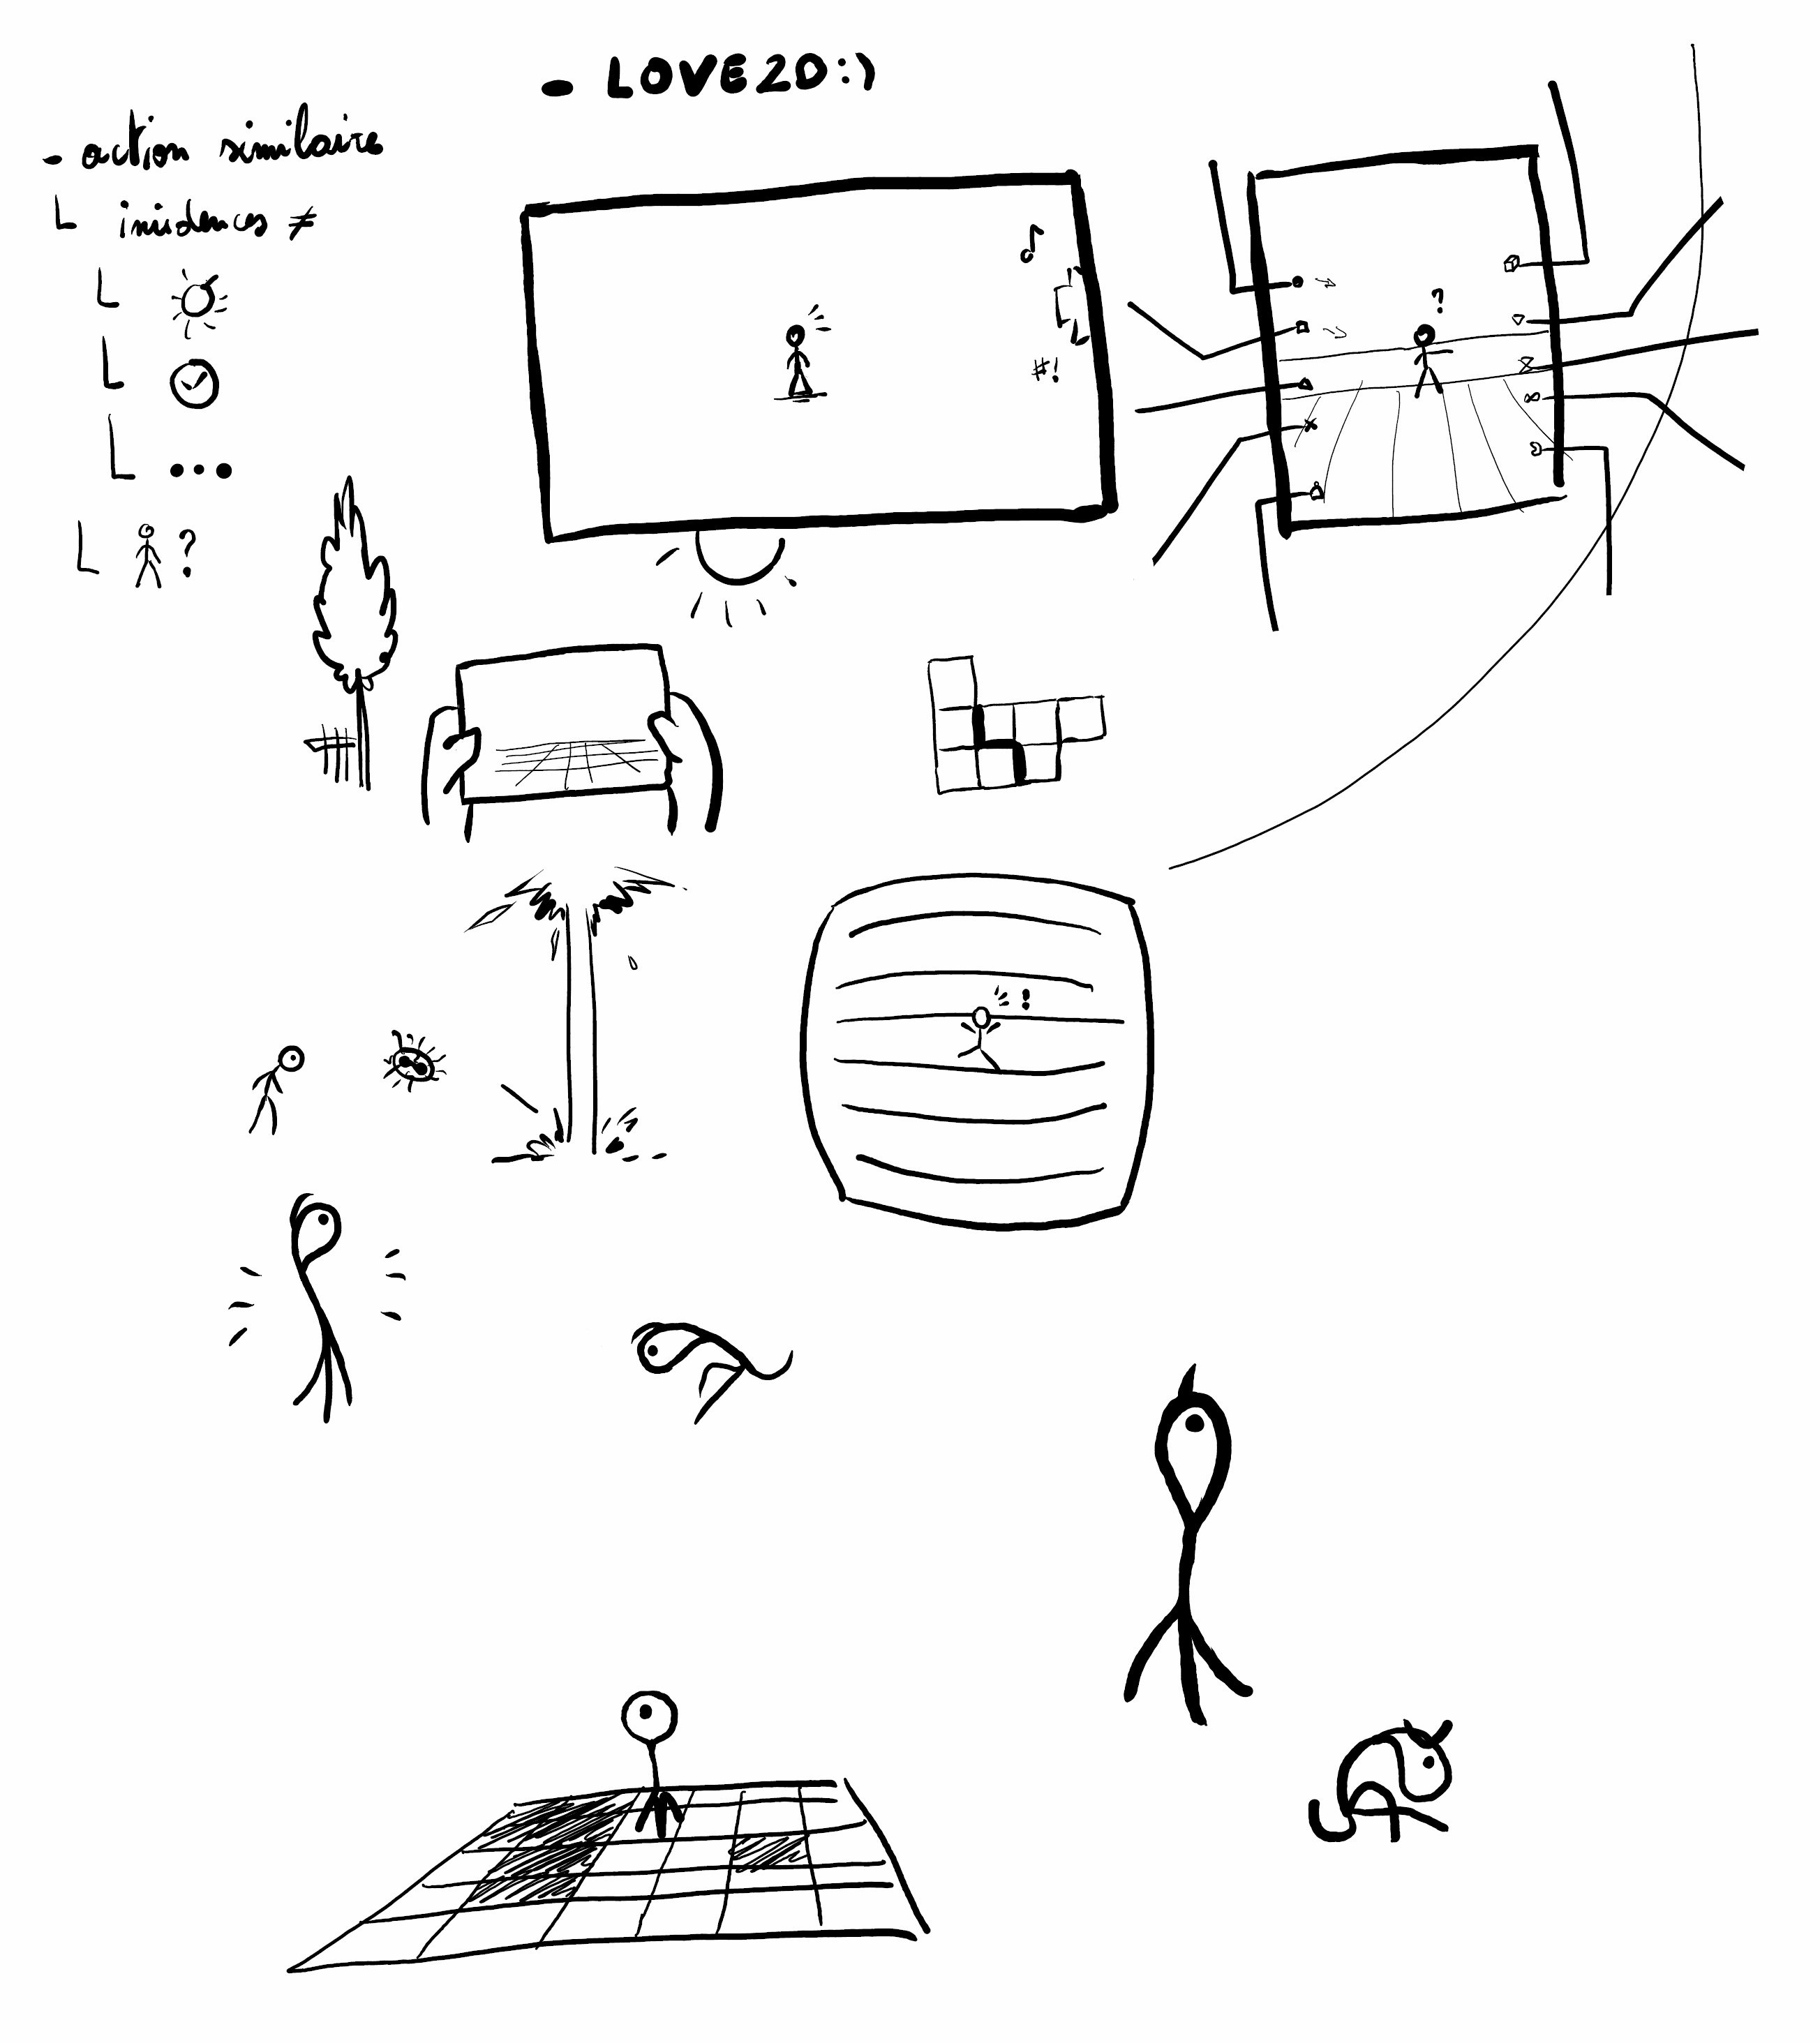 - LOVE2D:)
- action similaire
L incidences ≠
L
L
L ...
L ?
#!
?
!